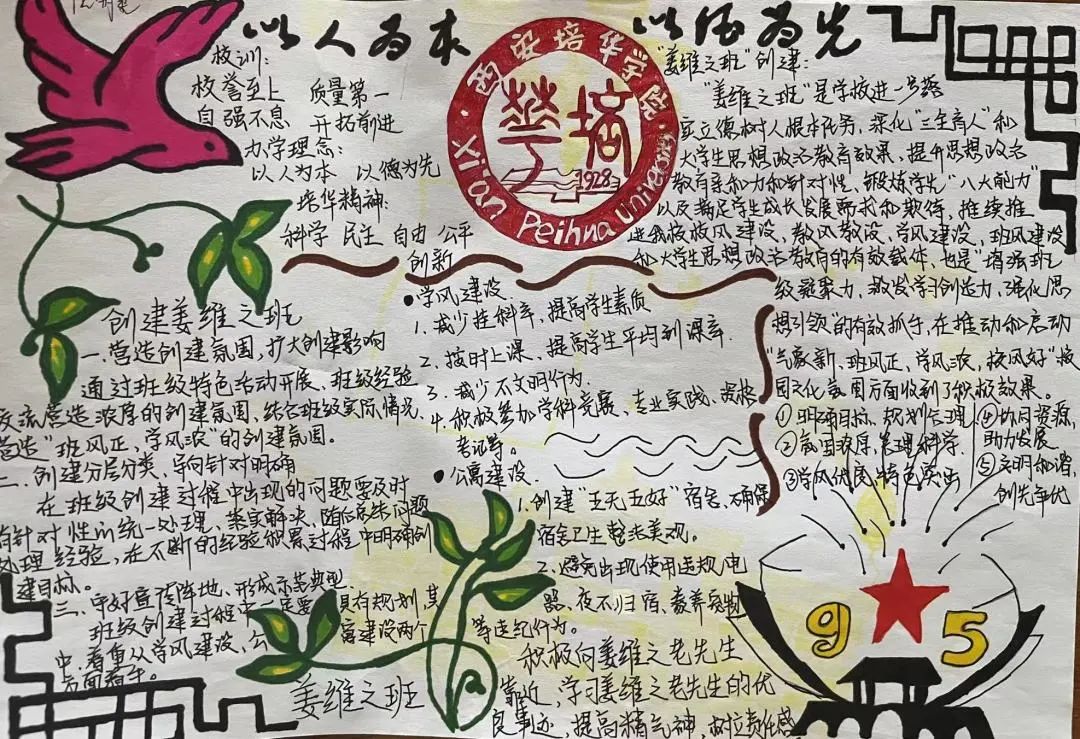 以人为本 以德为先
校训:
校誉至上 质量第一
自强不息 开拓前进
办学理念:
以人为本 以德为先
培华精神:
科学 民主 自由 公平
创新
西安培华学院
培华
1928
Xi'an Peihua University
"姜维之班"创建:
"姜维之班"是学校进一步落
实立德树人根本任务,深化"三全育人"和
大学生思想政治教育效果,提升思想政治
教育亲和力和针对性、锻炼学生"八大能力"
以及满足学生成长发展所求和期待,推续推
进我校校风建设、教风教设、学风建设、班风建设
和大学生思想政治教育的有效载体,也是"增强班
级凝聚力,激发学习创造力,强化思
想引领"的有效抓手,在推动和启动
"气象新、班风正、学风浓、校风好"校
园文化氛围方面收到了积极效果。
①明确目标,规划合理
②氛围浓厚,管理科学
③学风优良,特色突出
④协同资源,
助力发展
⑤文明和谐,
创先争优
创建姜维之班
一.营造创建氛围,扩大创建影响
通过班级特色活动开展、班级经验
交流营造浓厚的创建氛围,结合班级实际情况,
营造"班风正,学风浓"的创建氛围。
二.创建分层分类,导向针对明确
在班级创建过程中出现的问题要及时
有针对性的统一处理、落实解决,随后总结问题
处理经验,在不断的经验积累过程中明确创
建目标。
三、守好宣传阵地、形成示范典型
班级创建过程中 需要 具有规划,其
中,着重从学风建设、公寓建设两个
方面着手。
姜维之班
●学风建设
1.减少挂科率,提高学生素质
2.按时上课、提高学生平均到课率.
3.减少不文明行为.
4.积极参加学科竞赛、专业实践、资格
考证等。
●公寓建设.
1.创建"五无五好"宿舍、确保
宿舍卫生整洁美观。
2.避免出现使用违规电
器、夜不归宿、豢养宠物
等违纪行为。
积极向姜维之老先生
靠近,学习姜维之老先生的优
良事迹,提高精气神,树立责任感
95